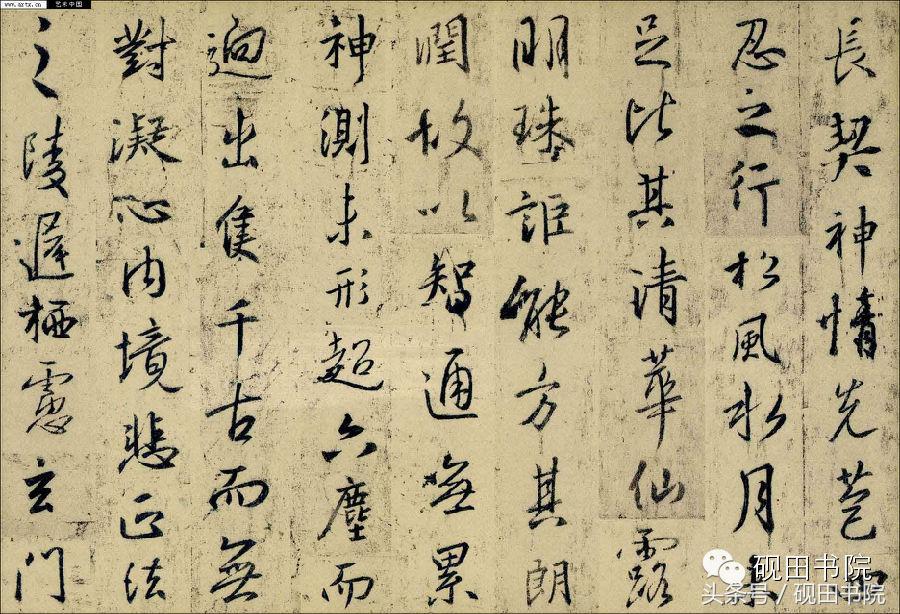 www.artx.cn 艺术中国
長契神情先苞四
忍之行松風水月未
足比其清華仙露
明珠詎能方其朗
潤故以智通無累
神測未形超六塵而
迥出隻千古而無
對凝心內境悲正法
之陵遲栖慮玄門
砚田书院
头条号 / 砚田书院